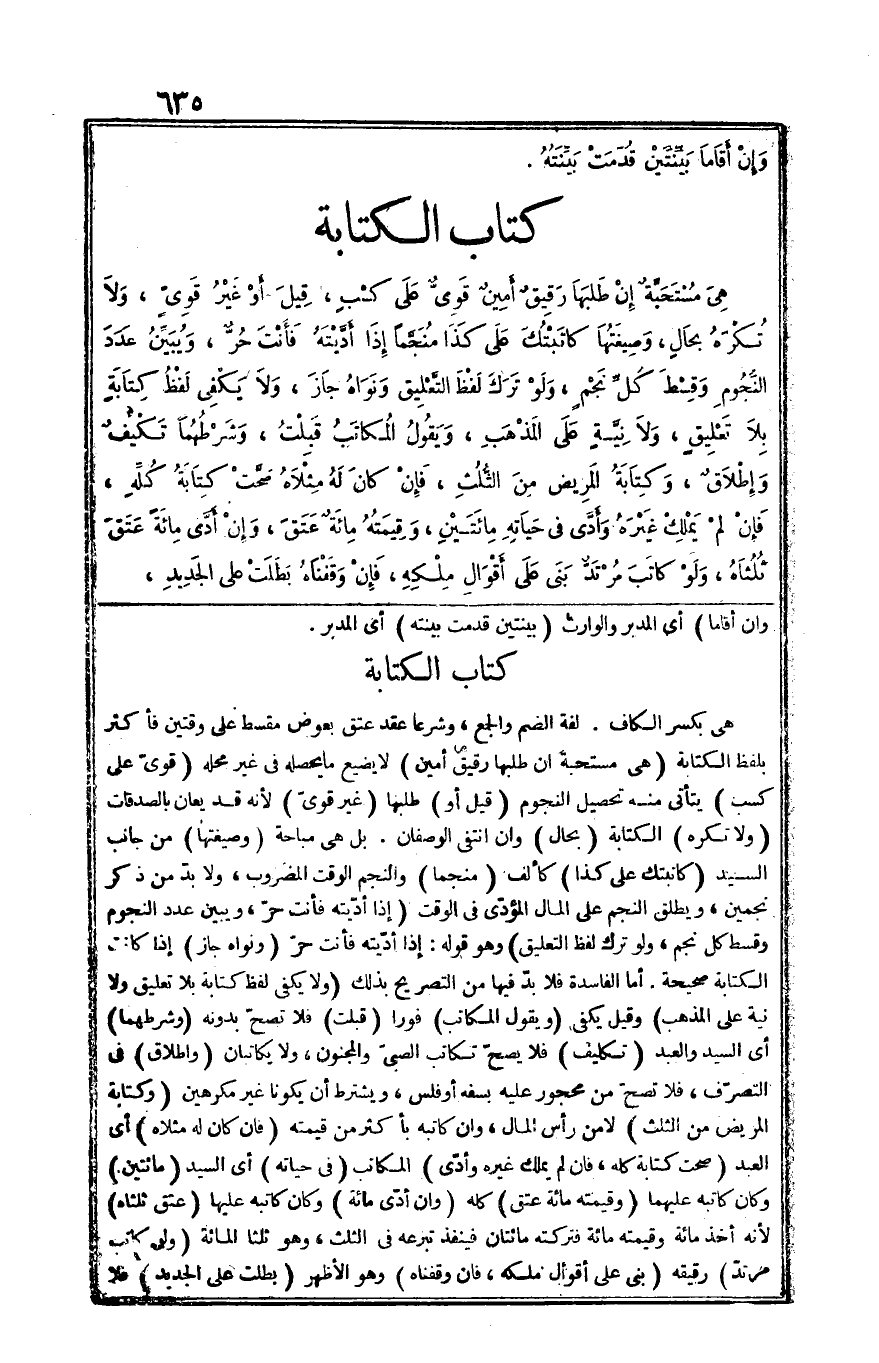 ٦٣٥
وَإِنْ أَقَامَا بَيِّنَتَيْنِ قُدِّمَتْ بَيِّنَتُهُ .
كتاب الكتابة
هِىَ مُسْتَحَبَّةٌ إِنْ طَلَبَهَا رَقِيقٌ أَمِينٌ قَوِىٌّ عَلَى كَسْبٍ ، قِيلَ أَوْ غَيْرُ قَوِىٍّ ، وَلَا
تُكْرَهُ بِحَالٍ ، وَصِيغَتُهَا كَاتَبْتُكَ عَلَى كَذَا مُنَجَّمًا إِذَا أَدَّيْتَهُ فَأَنْتَ حُرٌّ ، وَيُبَيِّنُ عَدَدَ
النُّجُومِ وَقِسْطَ كُلِّ نَجْمٍ ، وَلَوْ تَرَكَ لَفْظَ التَّعْلِيقِ وَنَوَاهُ جَازَ ، وَلَا يَكْفِى لَفْظُ كِتَابَةٍ
بِلَا تَعْلِيقٍ ، وَلَا نِيَّةٍ عَلَى الْمَذْهَبِ ، وَيَقُولُ الْمُكَاتَبُ قَبِلْتُ ، وَشَرْطُهُمَا تَكْلِيفٌ
وَإِطْلَاقٌ ، وَكِتَابَةُ الْمَرِيضِ مِنَ الثُّلُثِ ، فَإِنْ كَانَ لَهُ مِثْلَاهُ صَحَّتْ كِتَابَةُ كُلِّهِ ،
فَإِنْ لَمْ يَمْلِكْ غَيْرَهُ وَأَدَّى فِى حَيَاتِهِ مِائَتَيْنِ ، وَقِيمَتُهُ مِائَةٌ عَتَقَ ، وَإِنْ أَدَّى مِائَةً عَتَقَ
ثُلُثَاهُ ، وَلَوْ كَاتَبَ مُرْتَدٌّ بَنَى عَلَى أَقْوَالِ مِلْكِهِ ، فَإِنْ وَقَفْنَاهُ بَطَلَتْ عَلَى الْجَدِيدِ ،
وان أقاما ) أى المدبر والوارث ( بينتين قدمت بينته ) أى المدبر .
كتاب الكتابة
هى بكسر الكاف . لغة الضم والجمع ، وشرعا عقد عتق بعوض مقسط على وقتين فأكثر
بلفظ الكتابة ( هى مستحبة ان طلبها رقيق أمين ) لايضيع مايحصله فى غير محله ( قوىّ على
كسب ) يتأتى منه تحصيل النجوم ( قيل أو ) طلبها ( غير قوىّ ) لأنه قد يعان بالصدقات
( ولا تكره ) الكتابة ( بحال ) وان انتفى الوصفان . بل هى مباحة ( وصيغتها ) من جانب
السيد ( كاتبتك على كذا ) كألف ( منجما ) والنجم الوقت المضروب ، ولا بدّ من ذكر
نجمين ، ويطلق النجم على المال المؤدّى فى الوقت ( إذا أدّيته فأنت حرّ ، ويبين عدد النجوم
وقسط كل نجم ، ولو ترك لفظ التعليق) وهو قوله : إذا أدّيته فأنت حرّ ( ونواه جاز ) إذا كانت
الكتابة صحيحة . أما الفاسدة فلا بدّ فيها من التصريح بذلك ( ولا يكفى لفظ كتابة بلا تعليق ولا
نية على المذهب) وقيل يكفى (ويقول المكاتب) فورا ( قبلت ) فلا تصحّ بدونه (وشرطهما)
أى السيد والعبد ( تكليف ) فلا يصحّ تكاتب الصبىّ والمجنون ، ولا يكاتبان ( واطلاق ) فى
التصرّف ، فلا تصحّ من محجور عليه بسفه أوفلس ، ويشترط أن يكونا غير مكرهين ( وكتابة
المريض من الثلث ) لامن رأس المال ، وان كاتبه بأكثرمن قيمته ( فان كان له مثلاه ) أى
العبد ( صحت كتابة كله ، فان لم يملك غيره وأدّى ) المكاتب ( فى حياته ) أى السيد ( مائتين )
وكان كاتبه عليهما ( وقيمته مائة عتق ) كله ( وان أدّى مائة ) وكان كاتبه عليها ( عتق ثلثاه )
لأنه أخذ مائة وقيمته مائة فتركته مائتان فينفذ تبرعه فى الثلث ، وهو ثلثا المائة ( ولو كاتب
مرتدّ ) رقيقه ( بنى على أقوال ملكه ، فان وقفناه ) وهو الأظهر ( بطلت على الجديد ) فلا